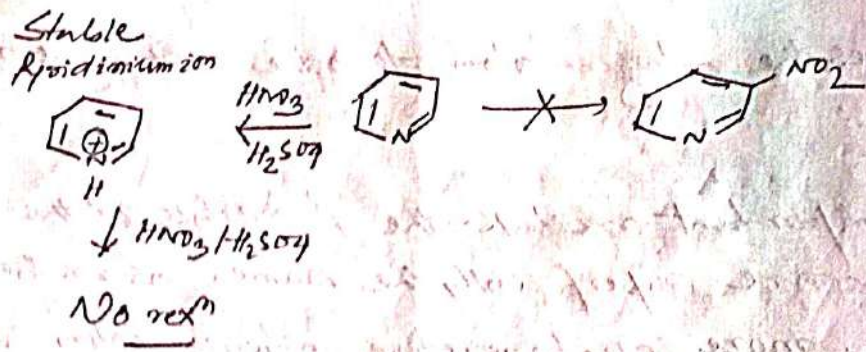 Stable
Pyridinium ion
HNO3
H2SO4
N
NO2
N
⊕
N
H
HNO3/H2SO4
No rexn